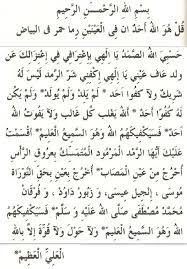 بِسْمِ اللهِ الرَّحْمٰنِ الرَّحِيْمِ
قُلْ هُوَ اللهُ أَحَدٌ اِنَّ فِي الْعَيْنَيْنِ رمدا حمر فى البياض
حَسْبِيَ اللهُ الصَّمَدُ يَا اِلٰهِي بِإِعْتِرَافِي فِي إِعْتِزَالِكَ عَنْ
ولد عَافِ عَيْنِي يَا اِلٰهِي اِكْفِنِي شَرَّ الرَّمَدِ لَيْسَ لَهُ
شَرِيْكٌ وَلَا أَحَدٌ * لَمْ يَلِدْ وَلَمْ يُوْلَدْ * وَلَمْ يَكُنْ
لَهُ كُفُوًا أَحَدٌ * اَللهُ يَغْلِبُ كُلَّ غَالِبٍ * وَلَا يَفُوْتُهُ
أَحَدٌ * فَسَيَكْفِيْكَهُمُ اللهُ وَهُوَ السَّمِيْعُ الْعَلِيْمُ * أَقْسَمْتُ
عَلَيْكَ أَيُّهَا الرَّمَدُ الْمَرْمُوْدُ الْمُتَمَسِّكُ بِعُرُوْقِ الرَّأْسِ
أُخْرُجْ مِنْ عَيْنِ الْمُصَابِ * أُخْرُجْ مِنْ الْعَيْنِ بِحَقِّ التَّوْرَاةِ
مُوسَى ، اِنْجِيلِ عِيسَى ، وَ زَبُوْرِ دَاوُدَ ، وَ فُرْقَانِ
مُحَمَّدٍ مُصْطَفَى صَلَّى اللهُ عَلَيْهِ وَ سَلَّمَ * فَسَيَكْفِيْكَهُمُ اللهُ
وَهُوَ السَّمِيْعُ الْعَلِيْمُ * وَلَا حَوْلَ وَلَا قُوَّةَ إِلَّا بِاللهِ
الْعَلِيِّ الْعَظِيْمِ *